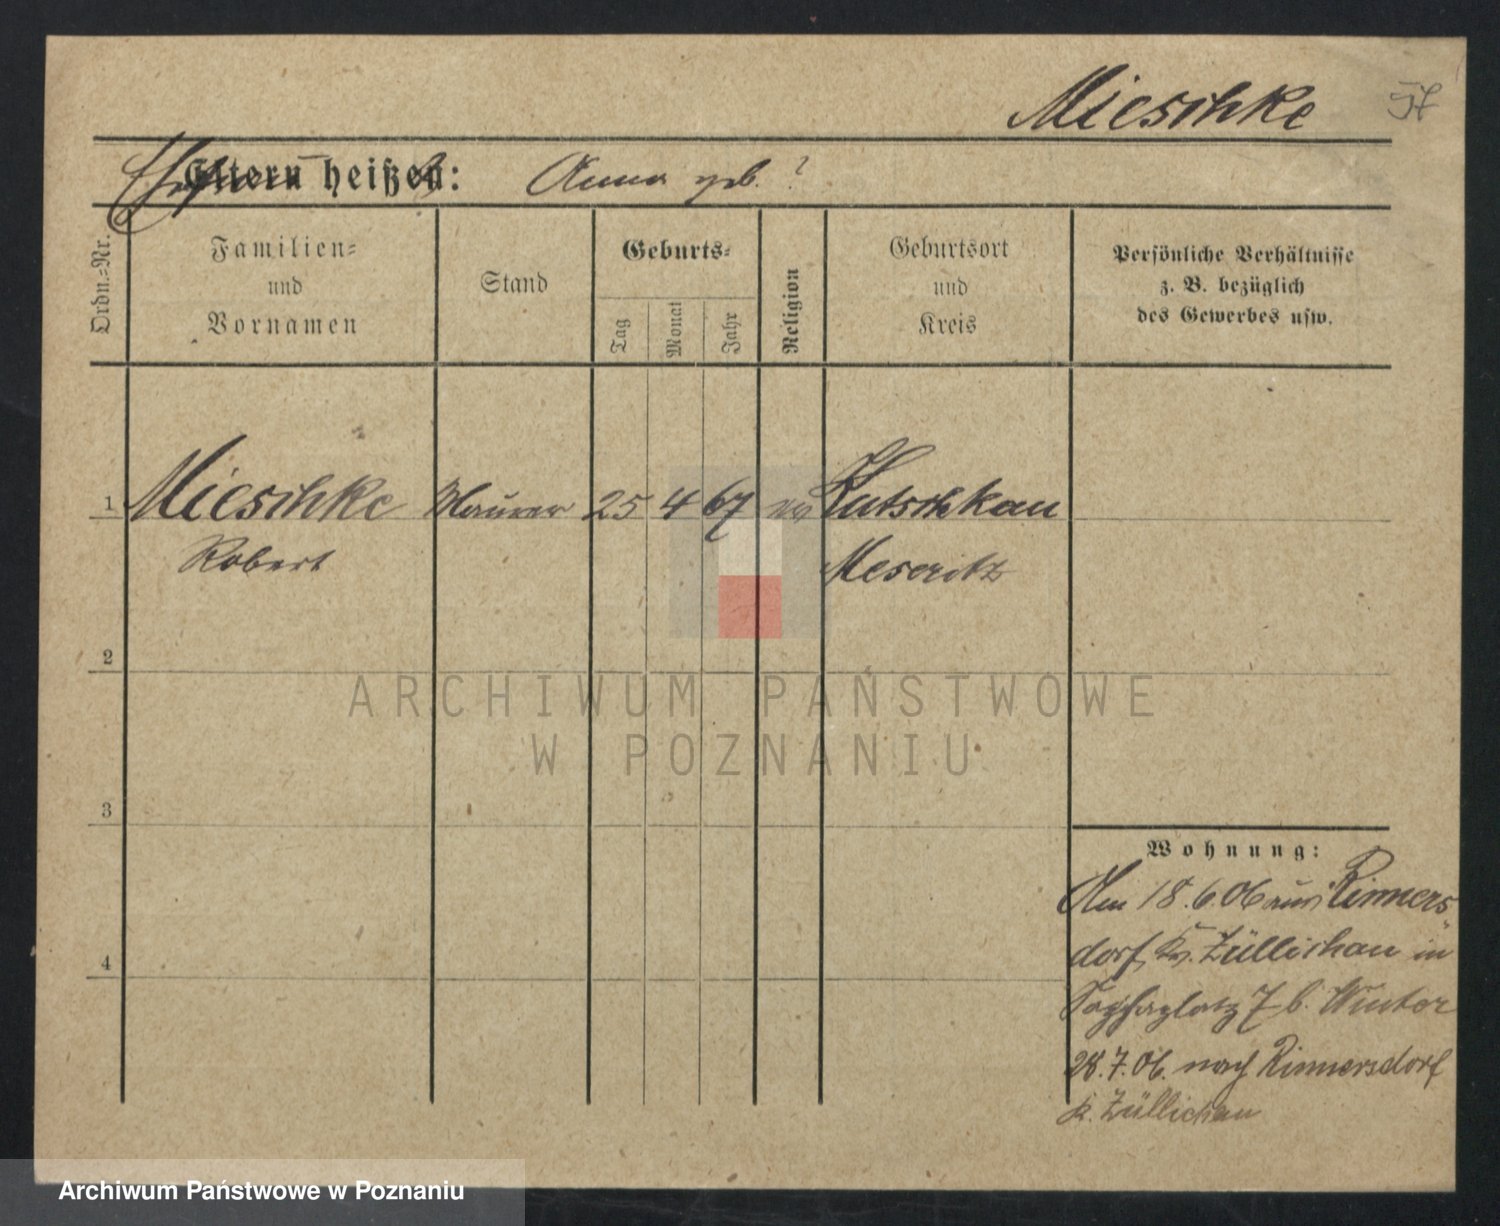 Mieschke
57
Eltern heißen: Anna geb. ?
Ordn.-Nr.
Familien-
und
Vornamen
Stand
Geburts-
Tag
Monat
Jahr
Religion
Geburtsort
und
Kreis
Persönliche Verhältnisse
z. B. bezüglich
des Gewerbes usw.
1 Mieschke Maurer 25 4 67 ev Kutschkau
Robert Meseritz
2
ARCHIWUM PAŃSTWOWE
W POZNANIU
3
Wohnung:
Am 18.6.06 aus Rinners
dorf, Kr. Züllichau in
7 b. Winter
4
28.7.06. nach Rinnersdorf
K. Züllichau
Archiwum Państwowe w Poznaniu